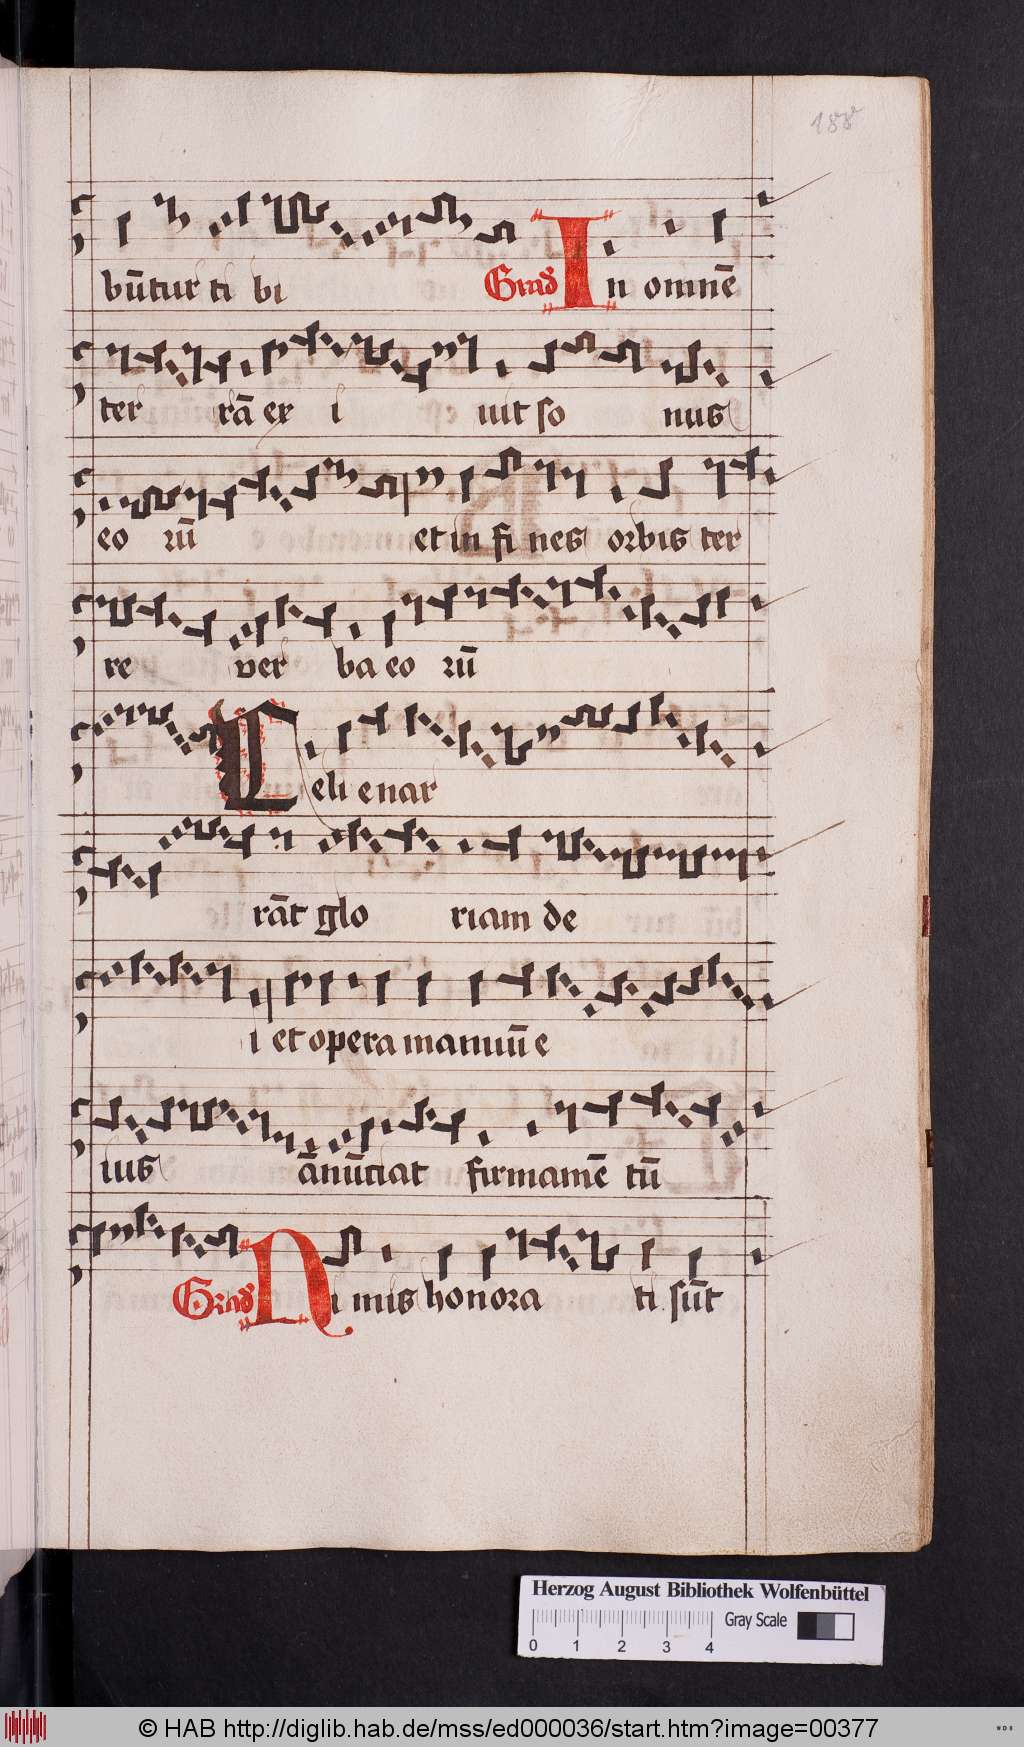 188
būtur ti bi Grad In omnē
ter rā ex i uit so nus
eo rū et in fi nes orbis ter
re ver ba eo rū
Celi enar
rāt glo riam de
i et opera manuū e
ius ānūciat firmamē tū
Grad Nimis honora ti sūt
Herzog August Bibliothek Wolfenbüttel
Gray Scale
0 1 2 3 4
© HAB http://diglib.hab.de/mss/ed000036/start.htm?image=00377